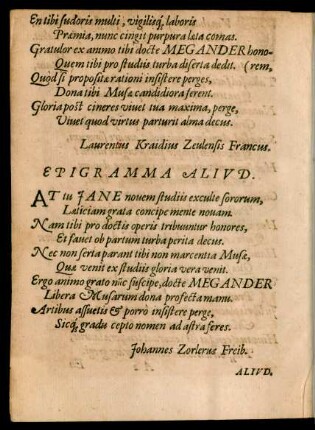 En tibi sudoris multi, vigiliq́, laboris
Præmia, nunc cingit purpura læta comas.
Gratulor ex animo tibi docte MEGANDER hono-
Quem tibi pro studiis turba diserta dedit. (rem,
Quod si propositæ rationi insistere perges,
Dona tibi Musæ candidiora ferent.
Gloria post cineres viuet tua maxima, perge,
Viuet quod virtus parturit alma decus.
Laurentus Kraidius Zeulensis Francus.
EPIGRAMMA ALIVD.
AT tu JANE nouem studiis exculte sororum,
Lætitiam grata concipe mente nouam.
Nam tibi pro doctis operis tribuuntur honores,
Et fauet ob partum turba perita decus.
Nec non serta parant tibi non marcentia Musæ,
Quæ venit ex studiis gloria vera venit.
Ergo animo grato nũc suscipe, docte MEGANDER
Libera Musarum dona profecta manu.
Artibus assuetis & porrò insistere perge,
Sicq́, gradu cepto nomen ad astra feres.
Johannes Zorlerus Freib.
ALIVD.